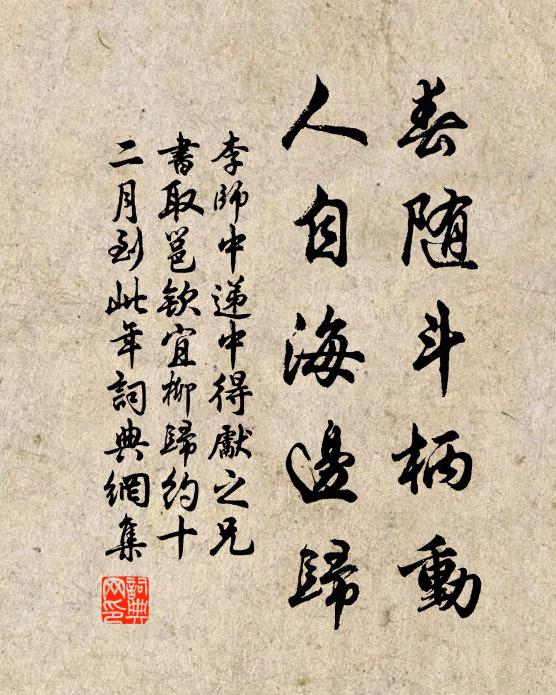 春随斗柄動
人自海邊歸
李師中遞中得獻之兄
書取邕欽宜柳歸約十
二月到此年詞典網集
詞典網印